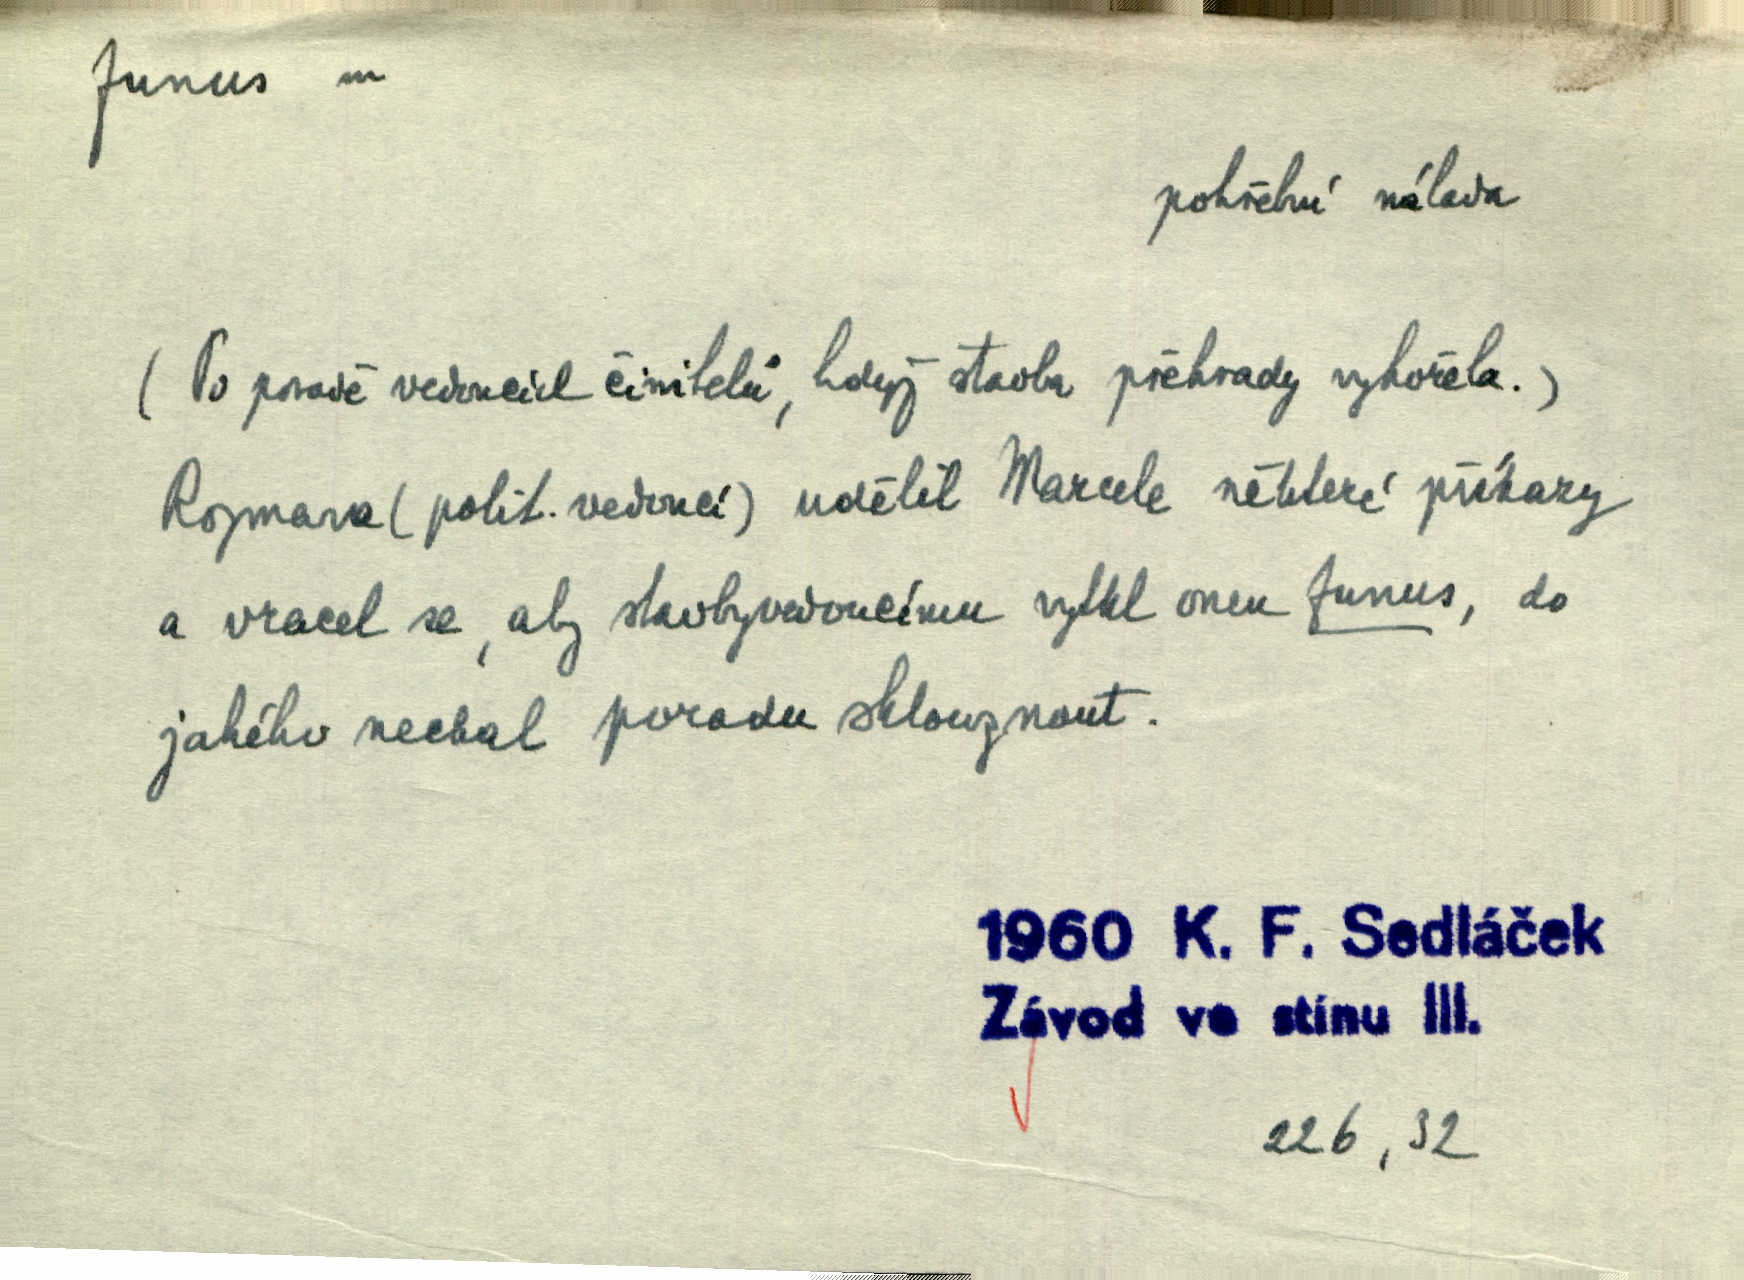 funus m
pohřební nálada
( Po poradě vedoucích činitelů, když stavba přehrady vyhořela. )
Rozmara ( polit. vedoucí ) udělil Marcele některé příkazy
a vracel se, aby stavbyvedoucímu vytkl onen funus, do
jakého nechal poradu sklouznout.
1960 K. F. Sedláček
Závod ve stínu III.
226, 32